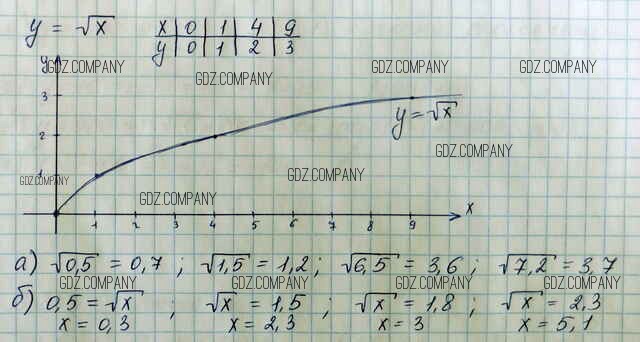 y = √x
x 0 1 4 9
y 0 1 2 3
GDZ.COMPANY GDZ.COMPANY GDZ.COMPANY GDZ.COMPANY
y
3
y = √x
2
GDZ.COMPANY GDZ.COMPANY
1
GDZ.COMPANY GDZ.COMPANY
x
1 2 3 4 5 6 7 8 9
а) √0,5 = 0,7 ; √1,5 = 1,2 ; √6,5 = 3,6 ; √7,2 = 3,7
GDZ.COMPANY GDZ.COMPANY GDZ.COMPANY GDZ.COMPANY
б) 0,5 = √x ; √x = 1,5 ; √x = 1,8 ; √x = 2,3
x = 0,3 x = 2,3 x = 3 x = 5,1